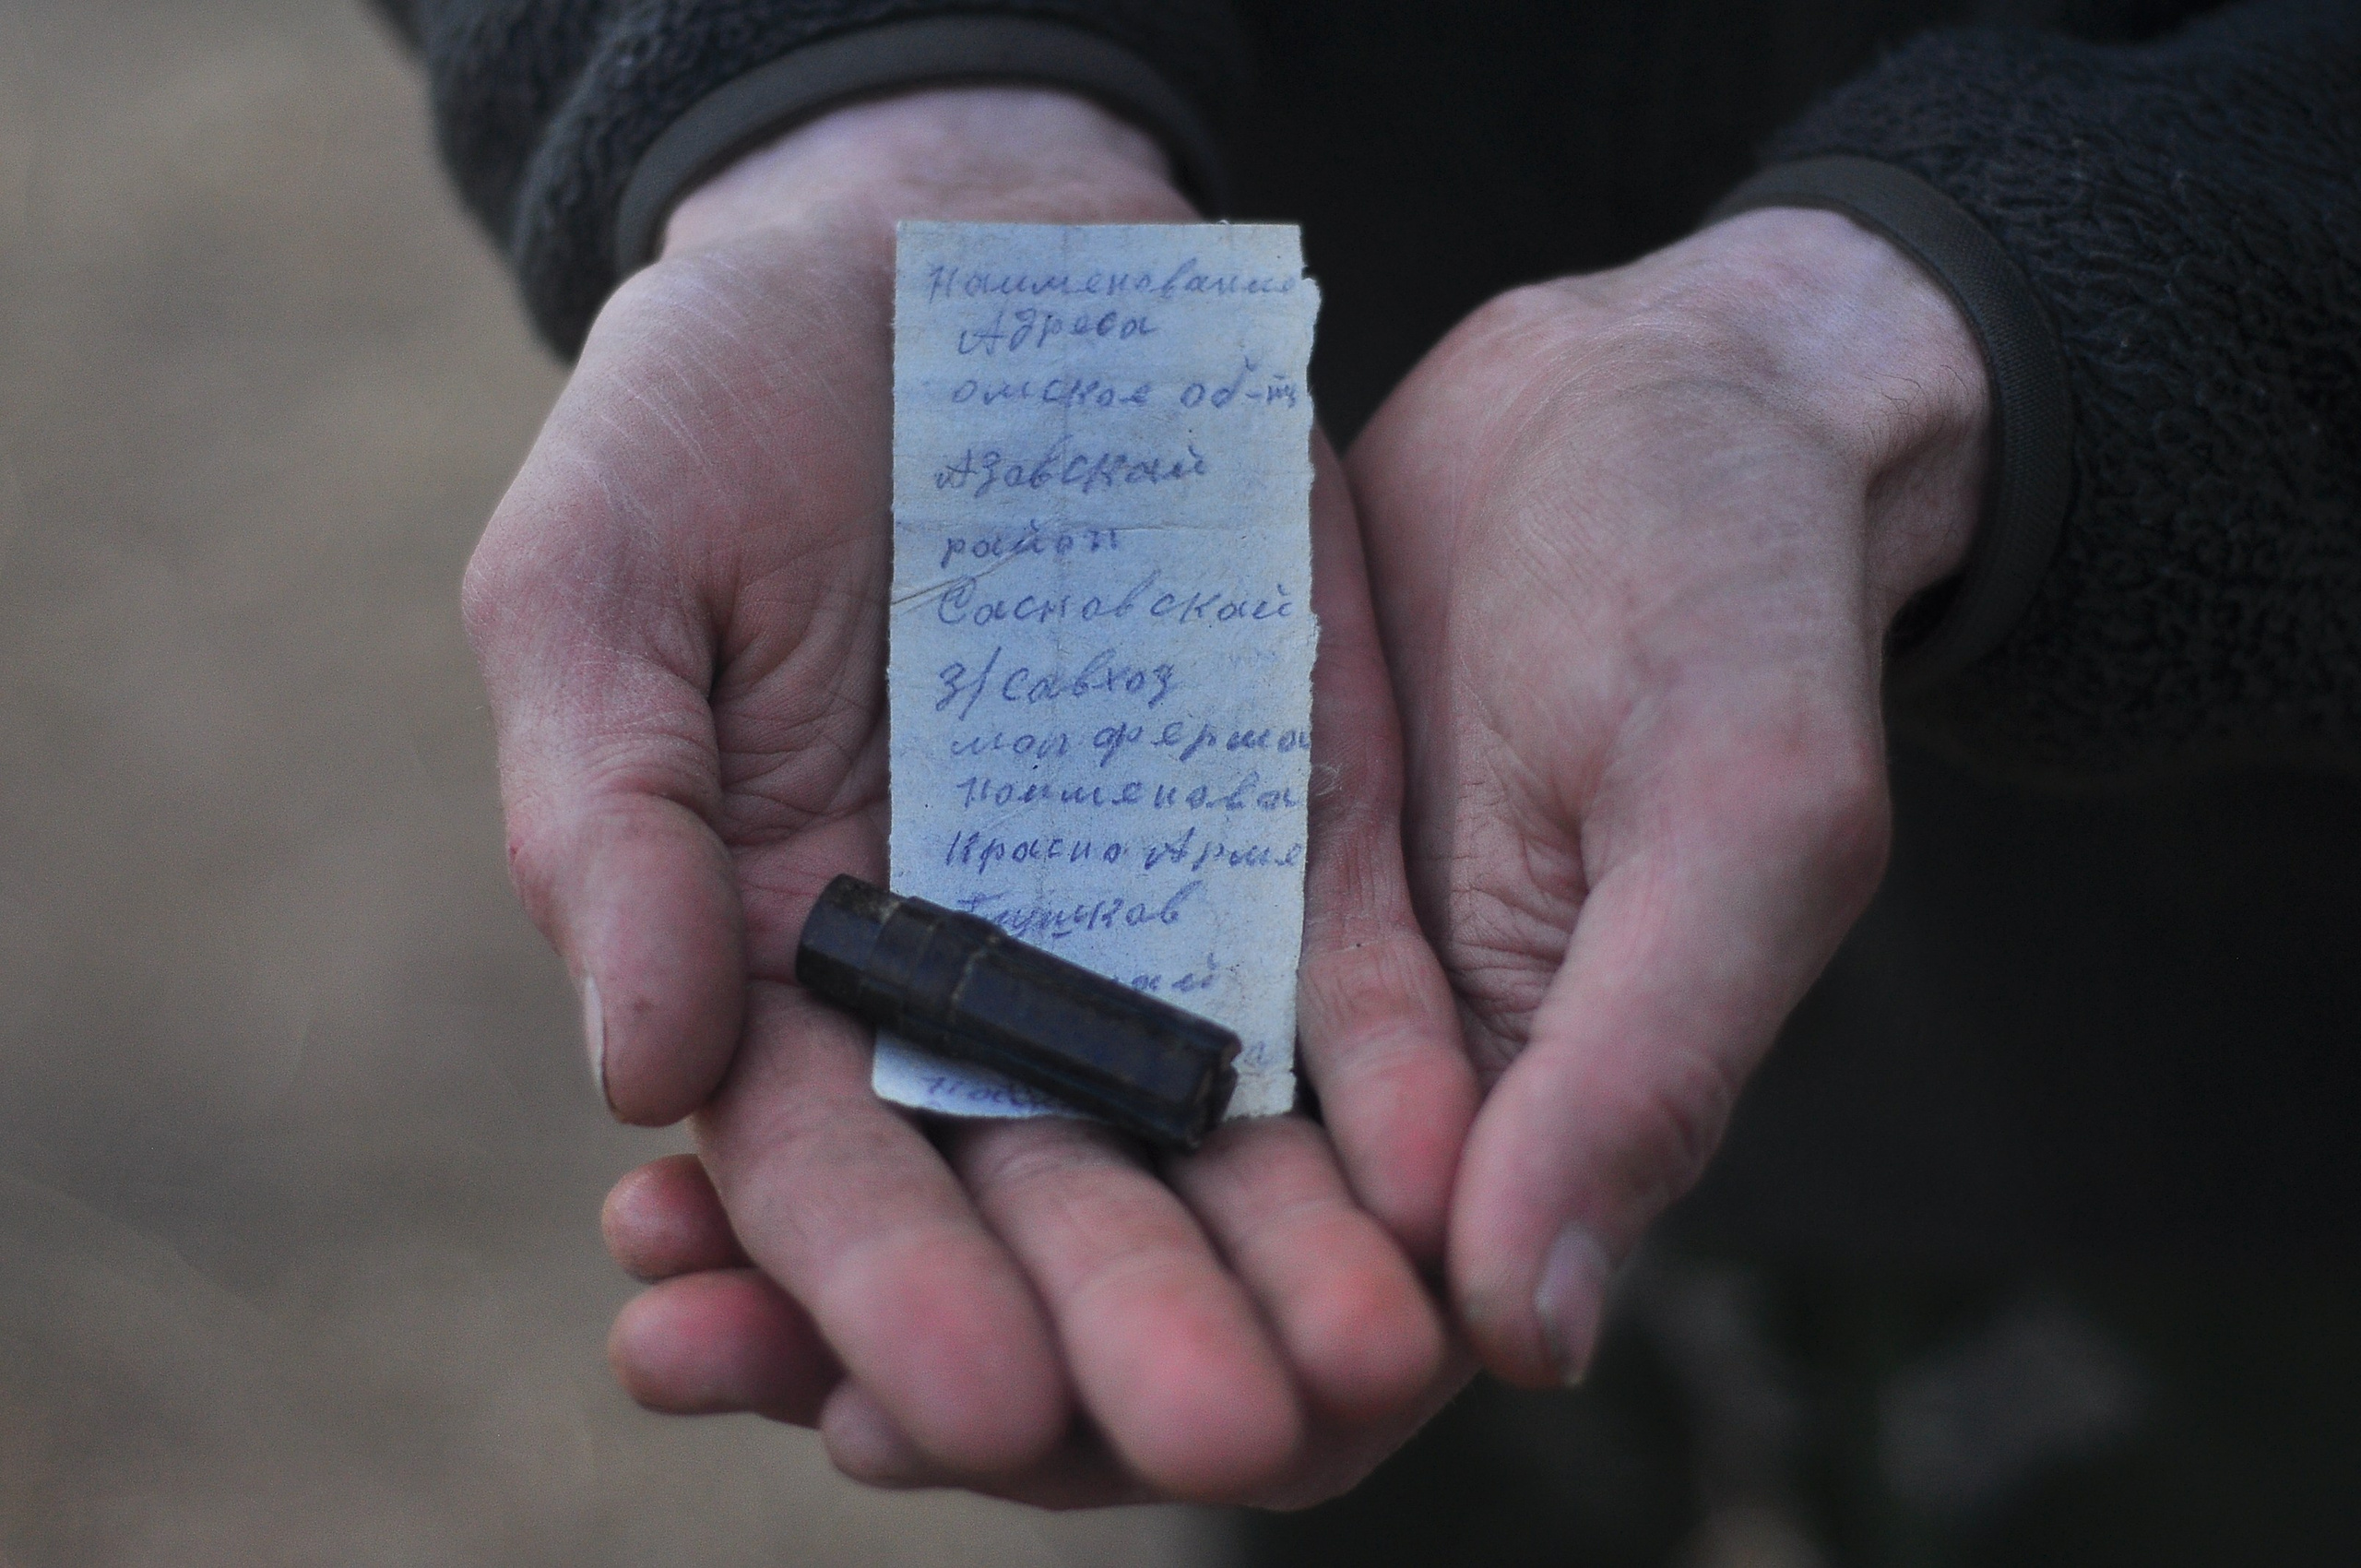 Наименование
Адреса
омское об-ть
Азовский
район
Сасновскай
з/савхоз
мол ферма
Наименова
Красно Арме
Глушков